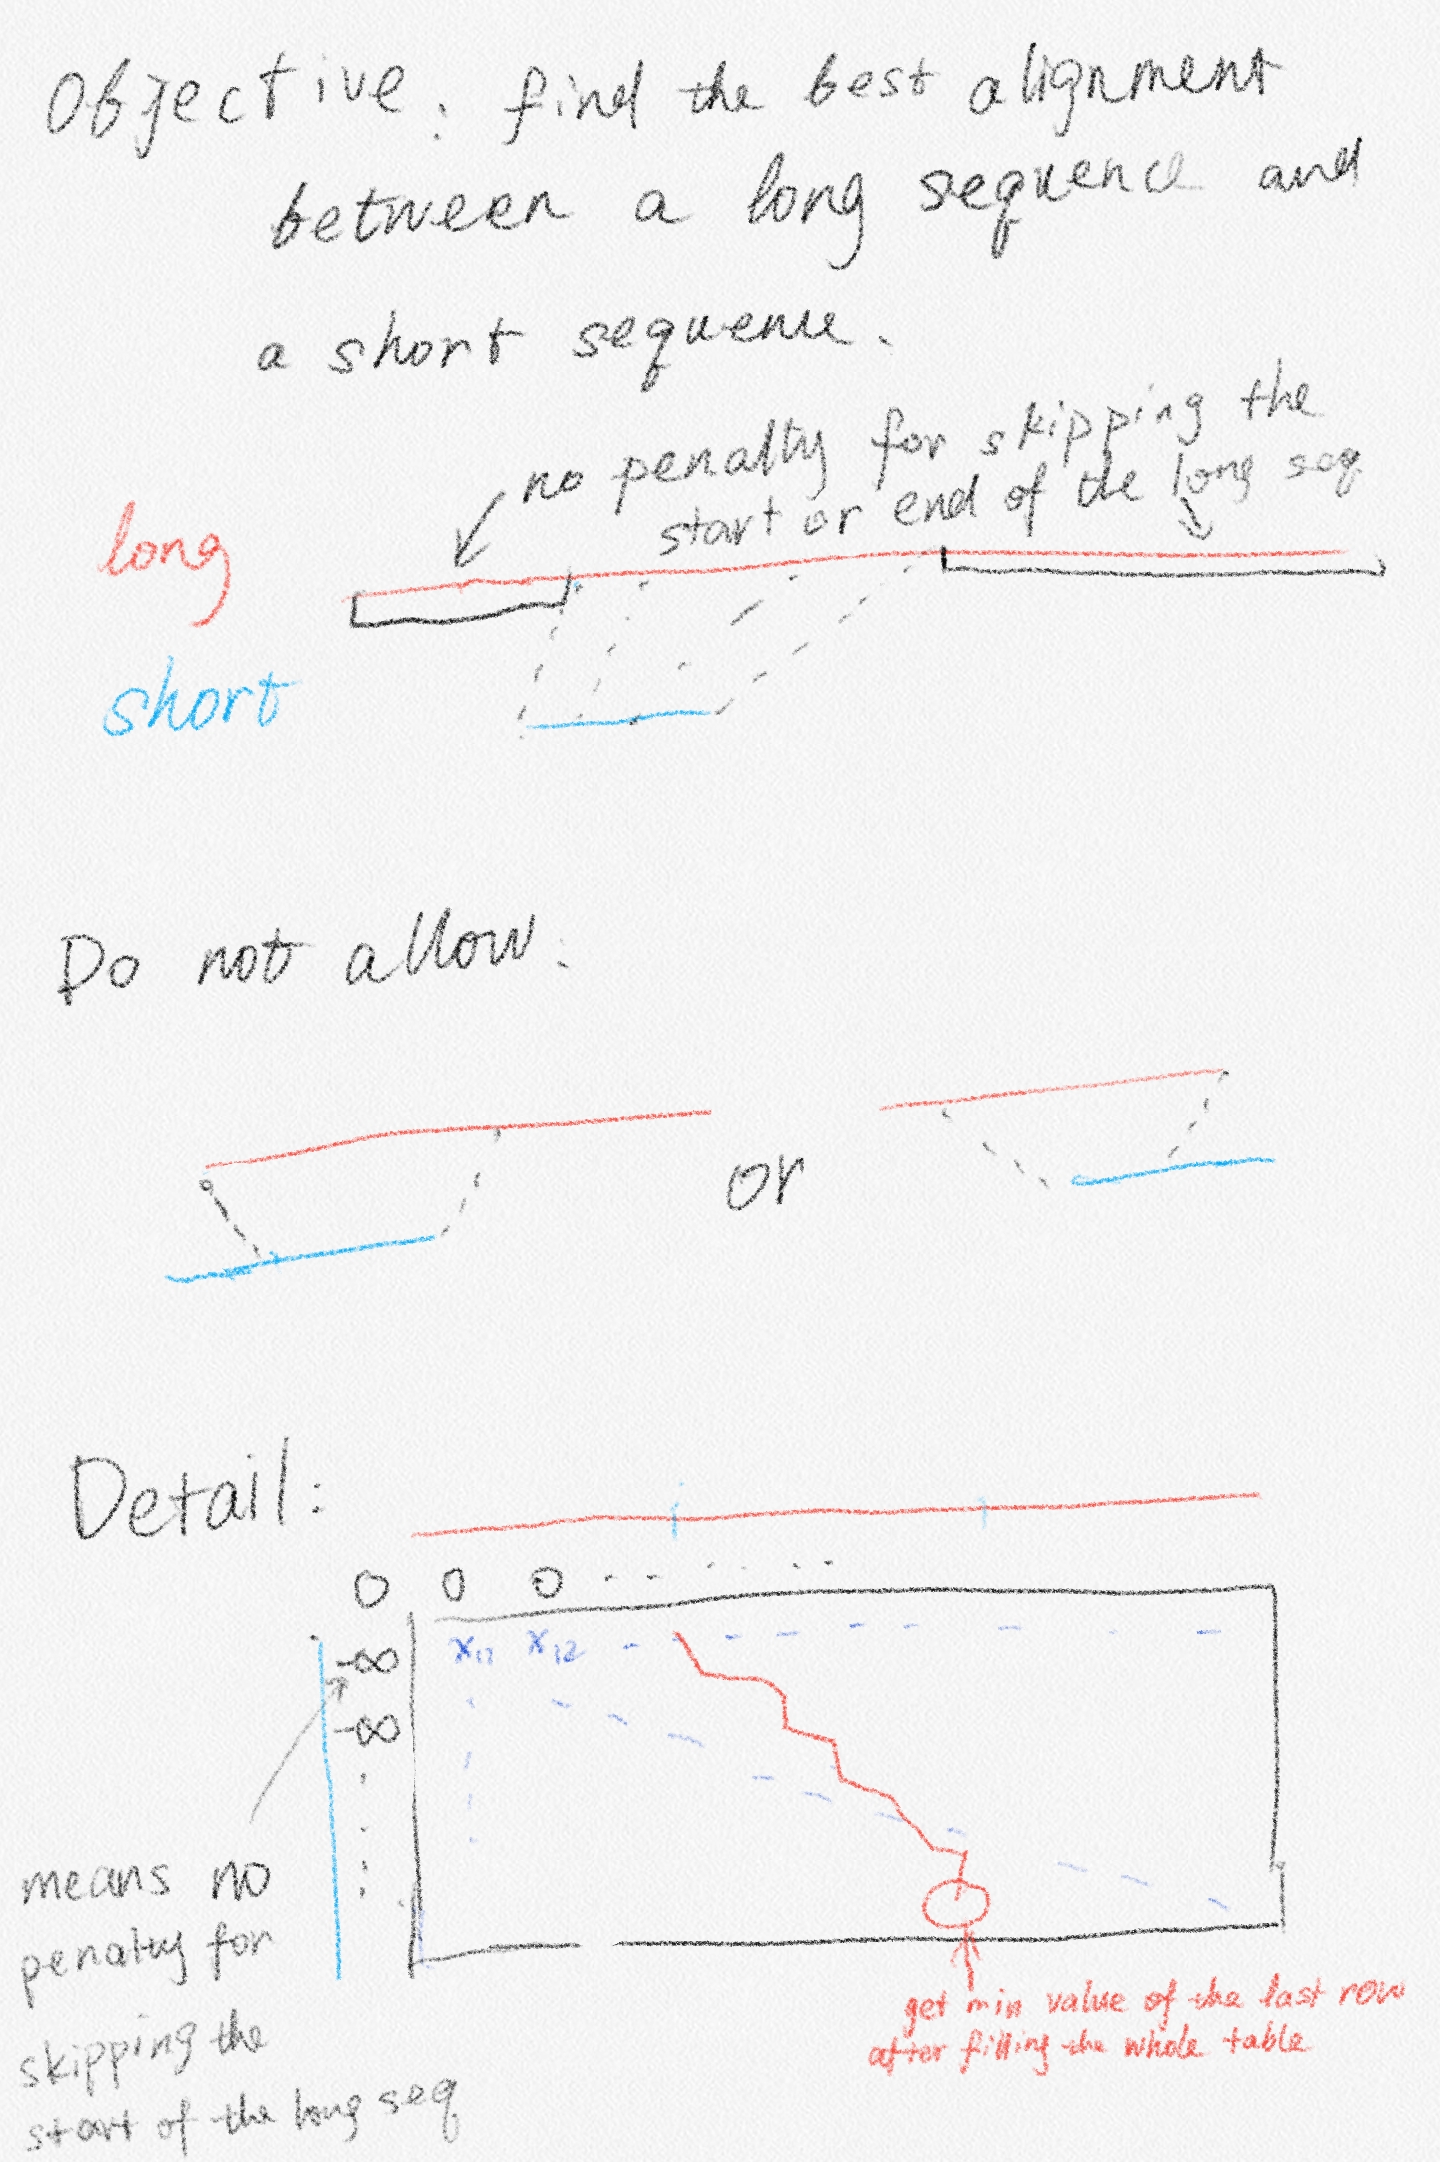 Objective: find the best alignment
between a long sequence and
a short sequence.
no penalty for skipping the
start or end of the long seq.
long
short
Do not allow:
or
Detail:
0 0 0
-∞ x11 x12
-∞
means no
penalty for
skipping the
start of the long seq
get min value of the last row
after filling the whole table